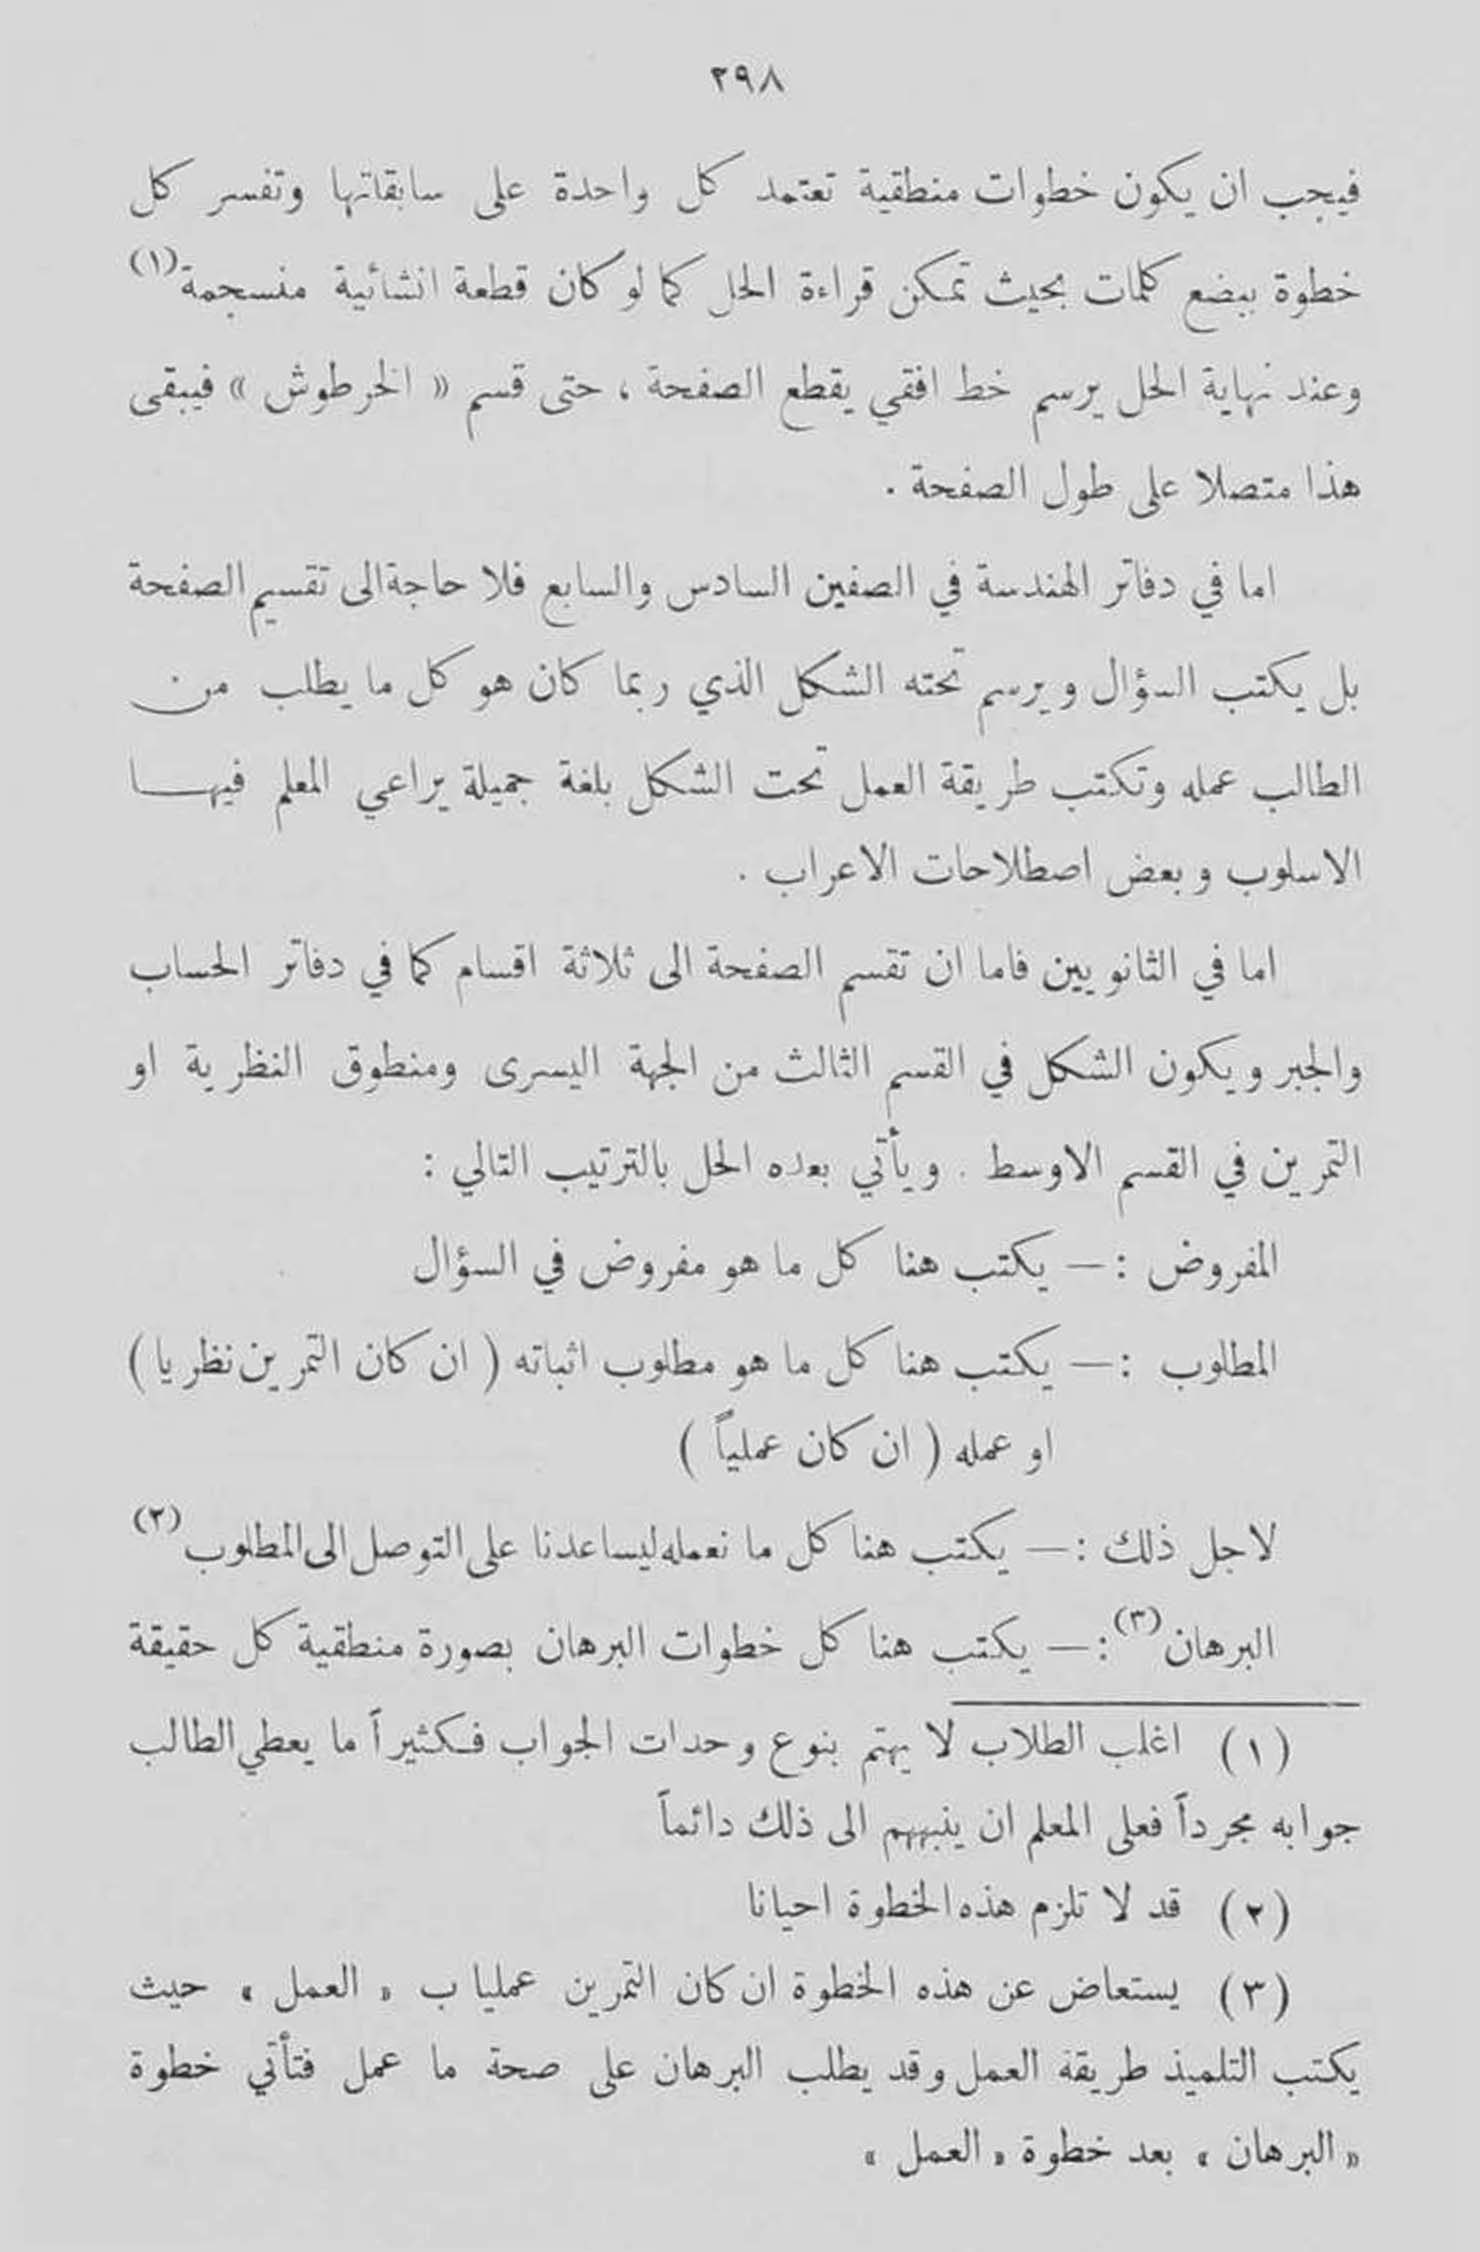 ٢٩٨
فيجب ان يكون خطوات منطقية تعتمد كل واحدة على سابقاتها وتفسر كل
خطوة ببضع كلمات بحيث تمكن قراءة الحل كما لو كان قطعة انشائية منسجمة (١)
وعند نهاية الحل يرسم خط افقي يقطع الصفحة ، حتى قسم « الخرطوش » فيبقى
هذا متصلا على طول الصفحة .
اما في دفاتر الهندسة في الصفين السادس والسابع فلا حاجة الى تقسيم الصفحة
بل يكتب السؤال ويرسم تحته الشكل الذي ربما كان هو كل ما يطلب من
الطالب عمله وتكتب طريقة العمل تحت الشكل بلغة جميلة يراعي المعلم فيهـا
الاسلوب وبعض اصطلاحات الاعراب .
اما في الثانويين فاما ان تقسم الصفحة الى ثلاثة اقسام كما في دفاتر الحساب
والجبر ويكون الشكل في القسم الثالث من الجهة اليسرى ومنطوق النظرية او
التمرين في القسم الاوسط . ويأتي بعده الحل بالترتيب التالي :
المفروض : — يكتب هنا كل ما هو مفروض في السؤال
المطلوب : — يكتب هنا كل ما هو مطلوب اثباته ( ان كان التمرين نظريا )
او عمله ( ان كان عملياً )
لاجل ذلك : — يكتب هنا كل ما نعمله ليساعدنا على التوصل الى المطلوب (٢)
البرهان (٣) : — يكتب هنا كل خطوات البرهان بصورة منطقية كل حقيقة
(١) اغلب الطلاب لا يهتم بنوع وحدات الجواب فكثيراً ما يعطي الطالب
جوابه مجرداً فعلى المعلم ان ينبههم الى ذلك دائماً
(٢) قد لا تلزم هذه الخطوة احيانا
(٣) يستعاض عن هذه الخطوة ان كان التمرين عمليا ب « العمل » حيث
يكتب التلميذ طريقة العمل وقد يطلب البرهان على صحة ما عمل فتأتي خطوة
« البرهان » بعد خطوة « العمل »